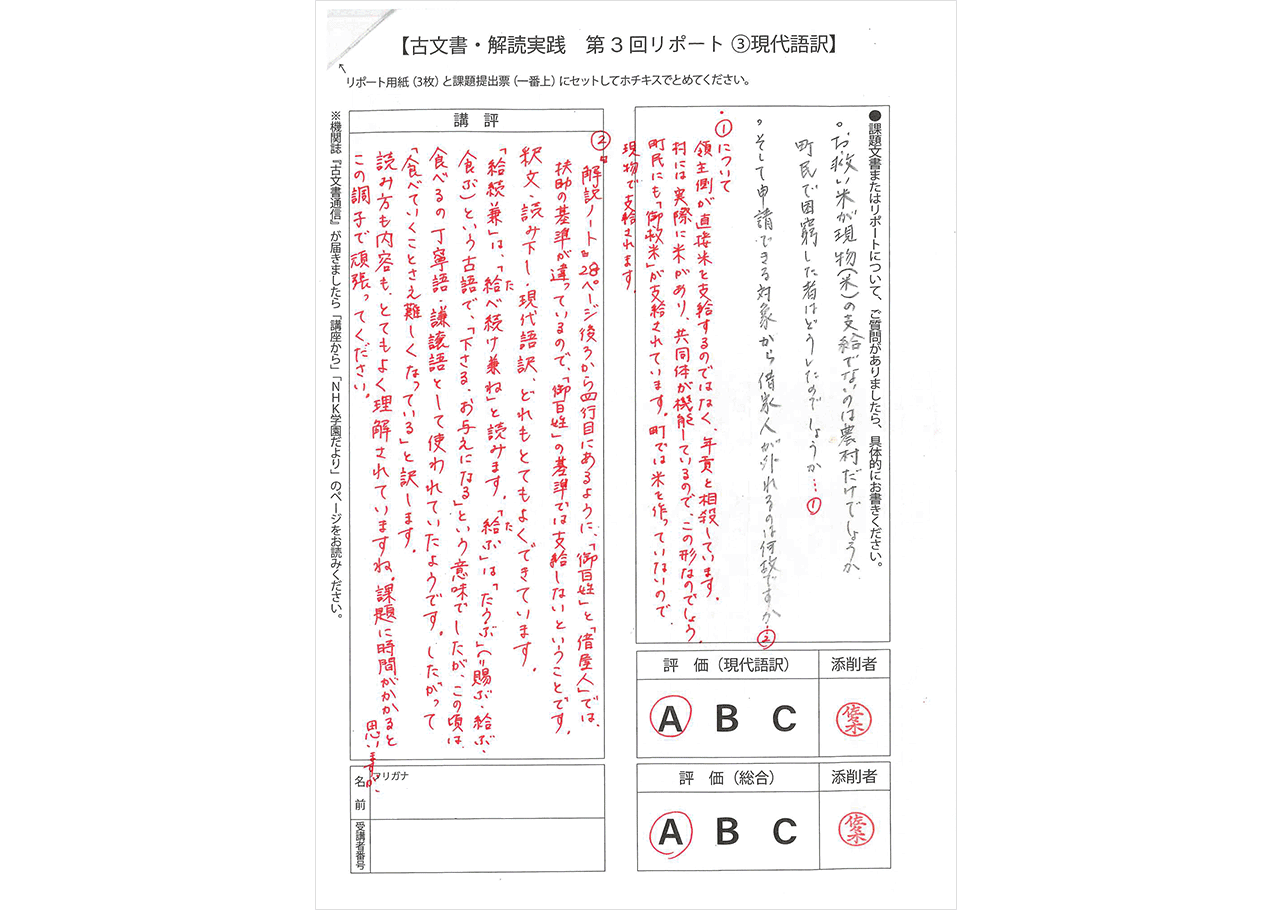 【古文書・解読実践 第3回リポート ③現代語訳】
リポート用紙(3枚)と課題提出票(一番上)にセットしてホチキスでとめてください。
●課題文書またはリポートについて、ご質問がありましたら、具体的にお書きください。
。お救い米が現物(米)の支給でないのは農村だけでしょうか
町民で困窮した者はどうしたのでしょうか…①
。そして申請できる対象から借家人が外れるのは何故ですか…②
・①について
領主側が直接米を支給するのではなく、年貢と相殺しています。
村には実際に米があり、共同体が機能しているので、この形なのでしょう。
町民にも「御救米」が支給されています。町では米を作っていないので、
現物で支給されます。
講評
②『解説ノート』28ページ後ろから四行目にあるように、「御百姓」と「借屋人」では、
扶助の基準が違っているので、「御百姓」の基準では支給しないということです。
釈文・読み下し・現代語訳、どれもとてもよくできています。
「給続兼」は、「給べ続け兼ね」と読みます。「給ぶ」は「たうぶ」(=賜ぶ・給ぶ・
た
た
食ぶ)という古語で、「下さる、お与えになる」という意味でしたが、この頃は、
食べるの丁寧語・謙譲語として使われていたようです。したがって
「食べていくことさえ難しくなっている」と訳します。
読み方も内容も、とてもよく理解されていますね。課題に時間がかかると
思いますが、
この調子で頑張ってください。
※機関誌『古文書通信』が届きましたら「講座から」「NHK学園だより」のページをお読みください。
評価(現代語訳)
添削者
A B C
佐々木
評価(総合)
添削者
A B C
佐々木
フリガナ
名前
受講者番号